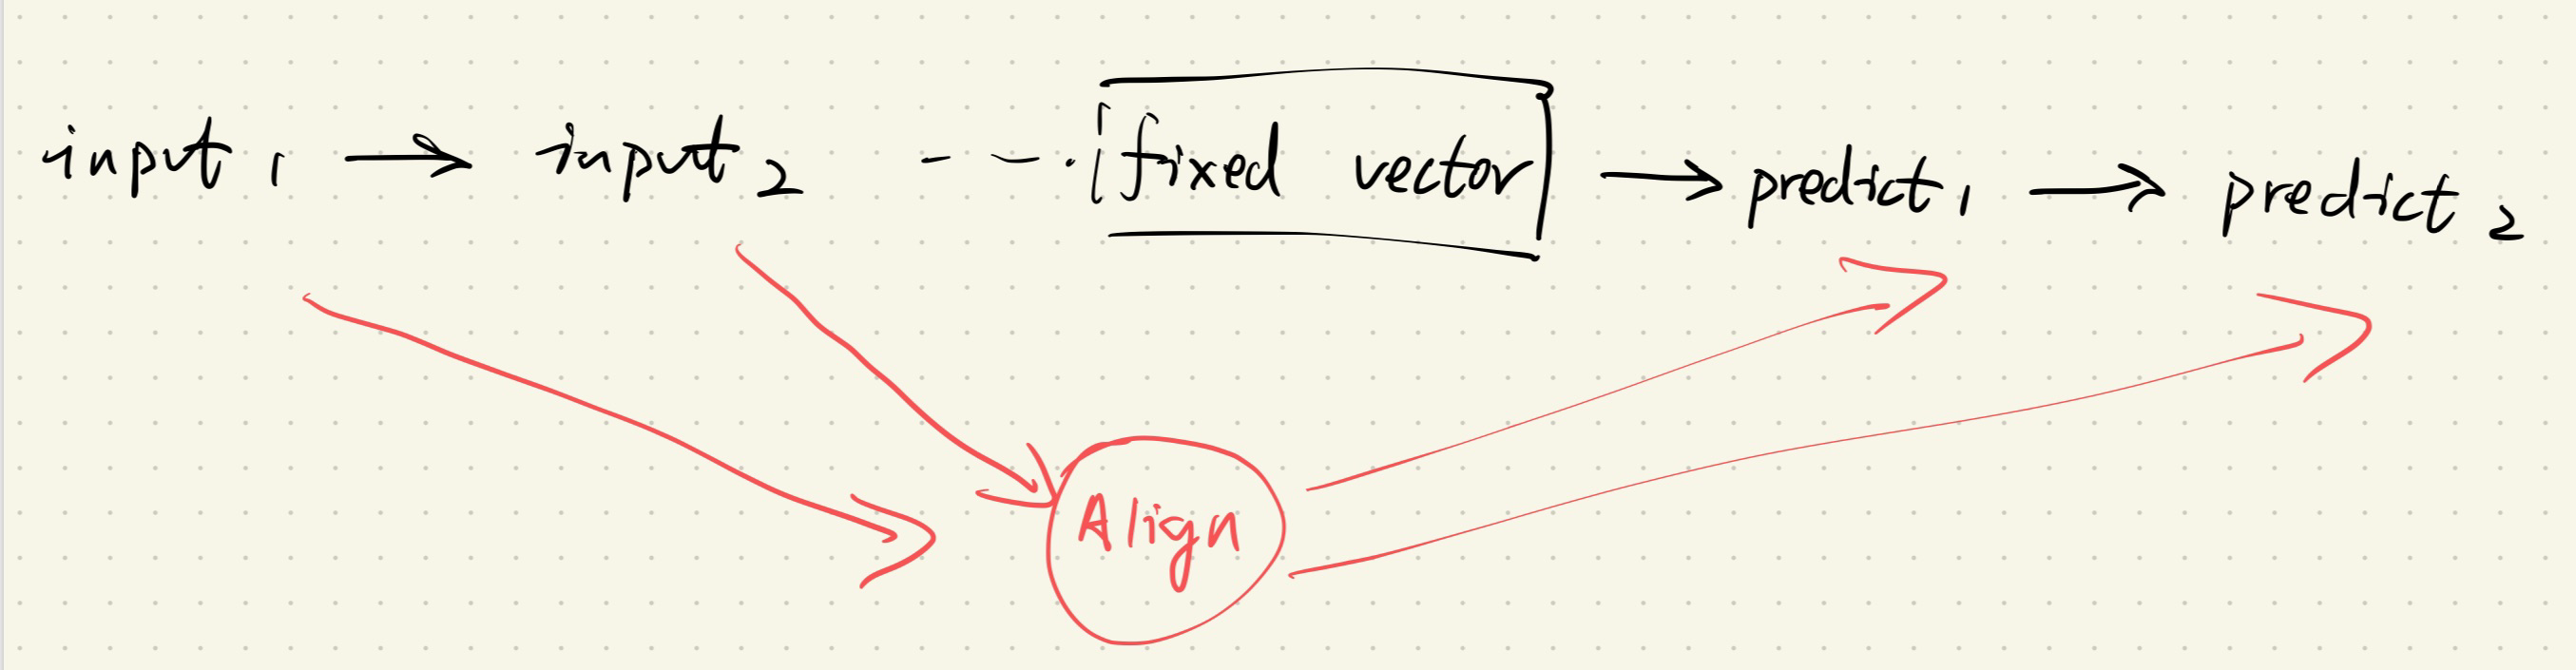 input 1 → input 2 --- fixed vector → predict 1 → predict 2
Align